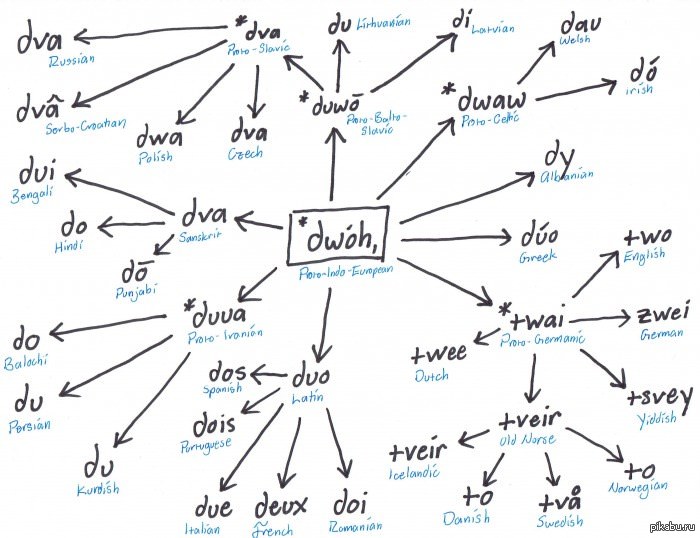 dva
Russian
*dva
Proto-Slavic
du Lithuanian
di Latvian
dau
Welsh
dvâ
Serbo-Croatian
dwa
Polish
dva
Czech
*duwō
Proto-Balto-
Slavic
*dwaw
Proto-Celtic
dó
irish
dui
Bengali
do
Hindi
dō
Punjabi
dva
Sanskrit
*dwóh,
Proto-Indo-European
dy
Albanian
dúo
Greek
two
English
*duua
Proto-Iranian
*twai
Proto-Germanic
zwei
German
do
Balochi
du
Persian
du
Kurdish
dos
Spanish
duo
Latin
dois
Portuguese
twee
Dutch
tsvey
Yiddish
tveir
Old Norse
tveír
Icelandic
to
Norwegian
due
Italian
deux
French
doi
Romanian
to
Danish
två
Swedish
pikabu.ru